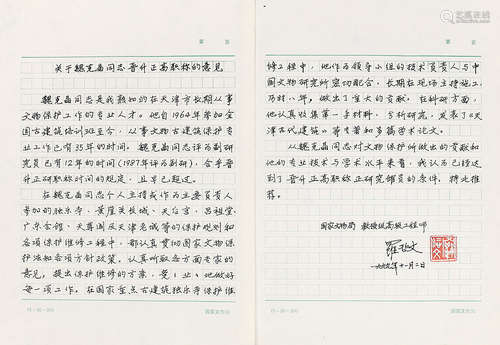 关于魏克晶同志晋升正高职称的意见
魏克晶同志是我熟知的在天津市长期从事
文物保护工作的专业人才。他自1964年参加全
国古建筑培训班至今，从事文物古建筑保护专
业工作已有35年的时间。魏克晶同志评为副研
究员已有12年的时间（1987年评为副研），合乎晋
升正研职称时间的规定，且早已超过。
在魏克晶同志个人主持或作为主要负责人
参加的独乐寺、黄崖关长城、天后宫、吕祖堂、
广东会馆、天尊阁及天津先城等的保护规划和
各项保护维修工程中，都认真贯彻国家文物保
护法和各项方针政策，认真听取各方面专家的
意见，提出保护维修的方案，兢兢业业地做好
每一项工作。在国家重点古建筑独乐寺保护维
15×20=300
第 页
修工程中，他作为领导小组的技术负责人与中
国文物研究所密切配合，长期在现场主持施工
乃时八年，做出了重大的贡献。在科研方面，
他认真收集第一手材料，分析研究，发表了《天
津古代建筑》等专著和多篇学术论文。
从魏克晶同志对文物保护所做出的贡献和
他的专业技术与学术水平来看，我认为已经达
到了晋升正高职称正研究馆员的条件，特此推
荐。
国家文物局 教授级高级工程师
罗哲文
一九九九年十一月二日
15×20=300
第 页